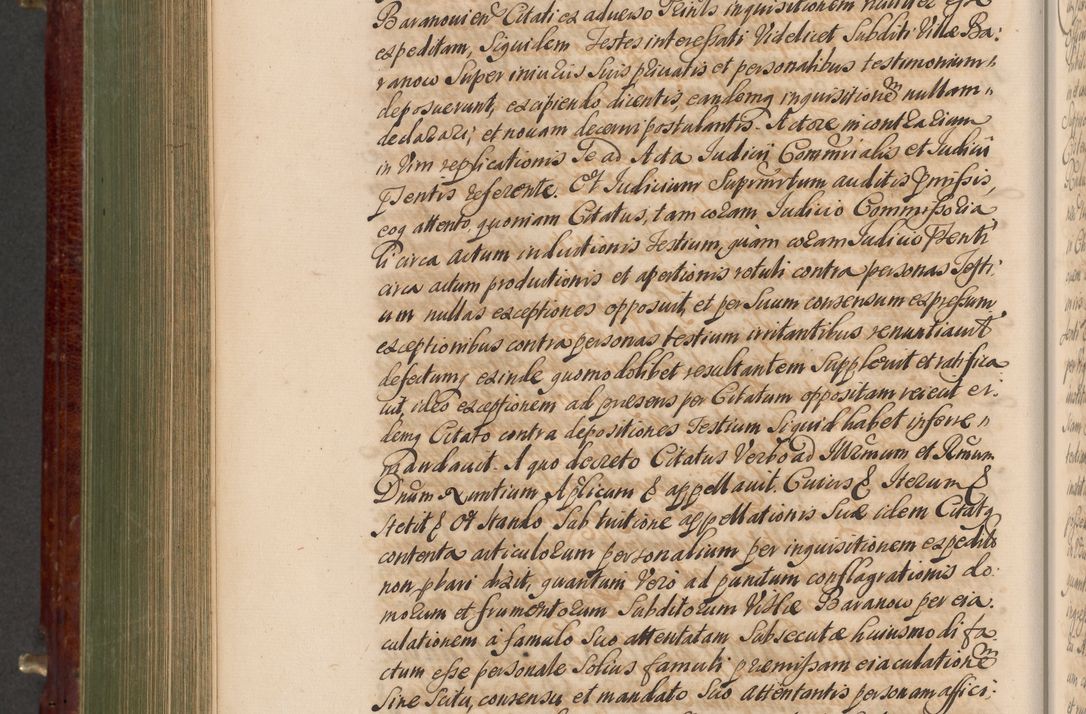 Baranovien Citati ex adverso
expeditam, Siquidem Testes interessati Videlicet Subditi Villæ Ba:
ranow Super iniuriis Suis privatis et personalibus testimonium
deposuerunt, excipiendo dicentis, eandemq inquisitionem nullam
declarari, et novam decerni postulantis. Actore in contrarium
in Vim replicationis Se ad Acta Judicii Commrialis et Judicii
Psentis referente. Et Judicium Supremum auditis pmissis,
eoq attento, quoniam Citatus, tam coram Judicio Commissoria
li circa actum inductionis Testium, quam coram Judicio Psenti
circa actum productionis et apertionis rotuli contra personas Testi
um nullas exceptiones opposuit, et per Suum consensum expressum
exceptionibus contra personas testium irritantibus renuntiavit
defectumq exinde quomodolibet resultantem Supplevit et ratifica
vit, ideo exceptionem ad presens per Citatum oppositam reiecit ei
demq Citato contra depositiones Testium Siquid habet inferre
mandavit. A quo decreto Citatus Verbo ad Illrimum et Rmum
Dnum Nuntium Aplicum & appellavit. Cuius & Iterum &
Stetit & Et Stando Sub tuitione appellationis Suæ idem Citatq
contenta articulorum personalium per inquisitionem expedita
non pbari dixit, quantum Vero ad punctum conflagrationis do
morum et frumentorum Subditorum Villæ Baranow per eia
culationem a famulo Suo attentatam Subsecutæ huiusmodi fa
ctum esse personale Solius famuli præmissam eiaculationem
Sine Scitu, consensu, et mandato Suo attentantis personam affici